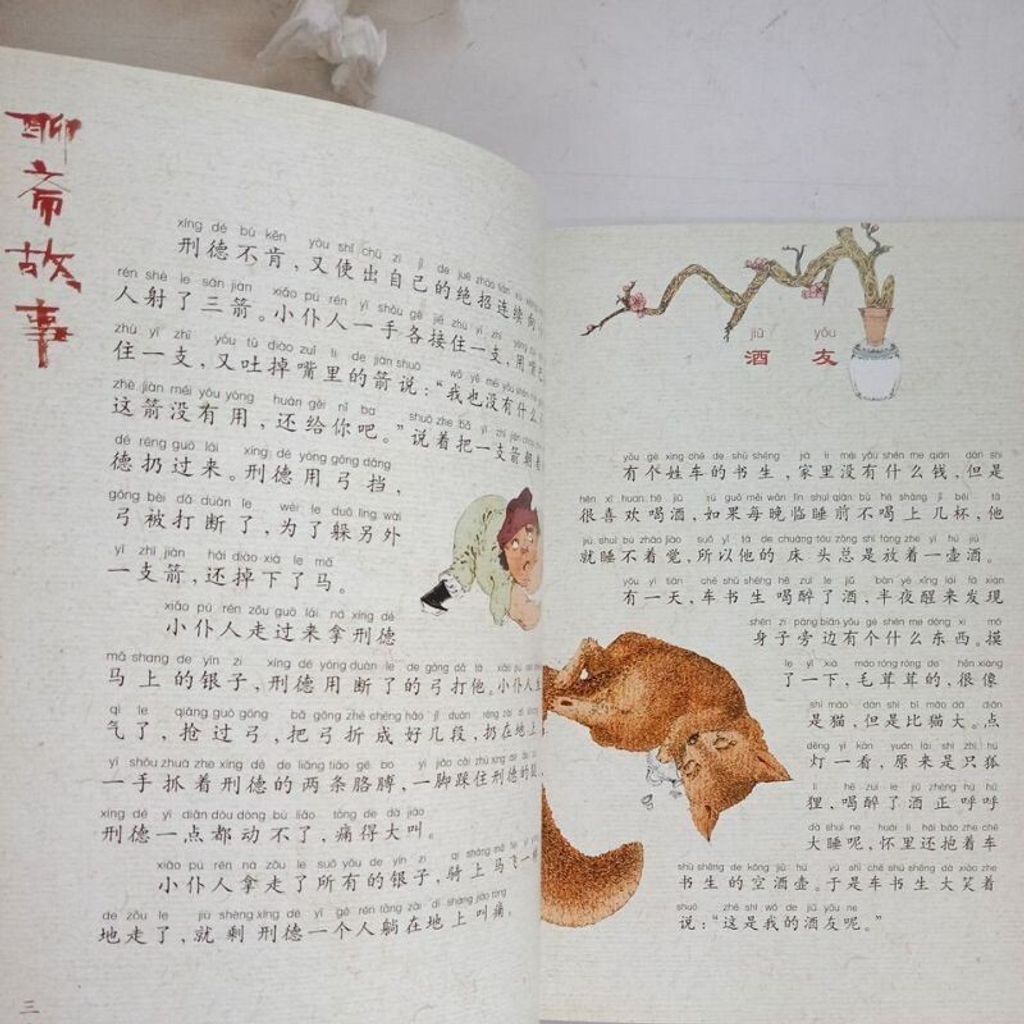 聊斋故事
xíng dé bù kěn yòu shǐ chū zì jǐ de jué zhāo lián
刑德不肯，又使出自己的绝招连续向
rén shè le sān jiàn xiǎo pú rén yì shǒu gè jiē zhù yì zhī
人射了三箭。小仆人一手各接住一支，用嘴
zhù yì zhī yòu tǔ diào zuǐ li de jiàn shuō wǒ yě méi yǒu shén
住一支，又吐掉嘴里的箭说：“我也没有什么
zhè jiàn méi yǒu yòng huán gěi nǐ ba shuō zhe bǎ yì zhī jiàn
这箭没有用，还给你吧。”说着把一支箭朝
dé rēng guò lái xíng dé yòng gōng dǎng
德扔过来。刑德用弓挡，
gōng bèi dǎ duàn le wèi le duǒ lìng wài
弓被打断了，为了躲另外
yì zhī jiàn hái diào xià le mǎ
一支箭，还掉下了马。
xiǎo pú rén zǒu guò lái ná xíng dé
小仆人走过来拿刑德
mǎ shang de yín zi xíng dé yòng duàn le de gōng dǎ tā
马上的银子，刑德用断了的弓打他。小仆人
qì le qiǎng guò gōng bǎ gōng zhé chéng hǎo jǐ duàn rēng zài
气了，抢过弓，把弓折成好几段，扔在地上
yì shǒu zhuā zhe xíng dé de liǎng tiáo gē bo yì jiǎo cǎi zhù xíng dé
一手抓着刑德的两条胳膊，一脚踩住刑德的
xíng dé yì diǎn dōu dòng bù liǎo tòng de dà jiào
刑德一点都动不了，痛得大叫。
xiǎo pú rén ná zǒu le suǒ yǒu de yín zi qí shàng mǎ
小仆人拿走了所有的银子，骑上马飞一
de zǒu le jiù shèng xíng dé yí gè rén tǎng zài dì shàng jiào tòng
地走了，就剩刑德一个人躺在地上叫痛。
三
jiǔ yǒu
酒友
yǒu gè xìng chē de shū shēng jiā li méi yǒu shén me qián dàn shì
有个姓车的书生，家里没有什么钱，但是
hěn xǐ huan hē jiǔ rú guǒ měi wǎn lín shuì qián bù hē shàng jǐ bēi tā
很喜欢喝酒，如果每晚临睡前不喝上几杯，他
jiù shuì bù zháo jiào suǒ yǐ tā de chuáng tóu zǒng shì fàng zhe yì hú jiǔ
就睡不着觉，所以他的床头总是放着一壶酒。
yǒu yì tiān chē shū shēng hē zuì le jiǔ bàn yè xǐng lái fā xiàn
有一天，车书生喝醉了酒，半夜醒来发现
shēn zi páng biān yǒu gè shén me dōng xi mō
身子旁边有个什么东西。摸
le yí xià máo róng róng de hěn xiàng
了一下，毛茸茸的，很像
shì māo dàn shì bǐ māo dà diǎn
是猫，但是比猫大。点
dēng yí kàn yuán lái shì zhī hú
灯一看，原来是只狐
li hē zuì le jiǔ zhèng hū hū
狸，喝醉了酒正呼呼
dà shuì ne huái li hái bào zhe chē
大睡呢，怀里还抱着车
shū shēng de kōng jiǔ hú yú shì chē shū shēng dà xiào zhe
书生的空酒壶。于是车书生大笑着
shuō zhè shì wǒ de jiǔ yǒu ne
说：“这是我的酒友呢。”